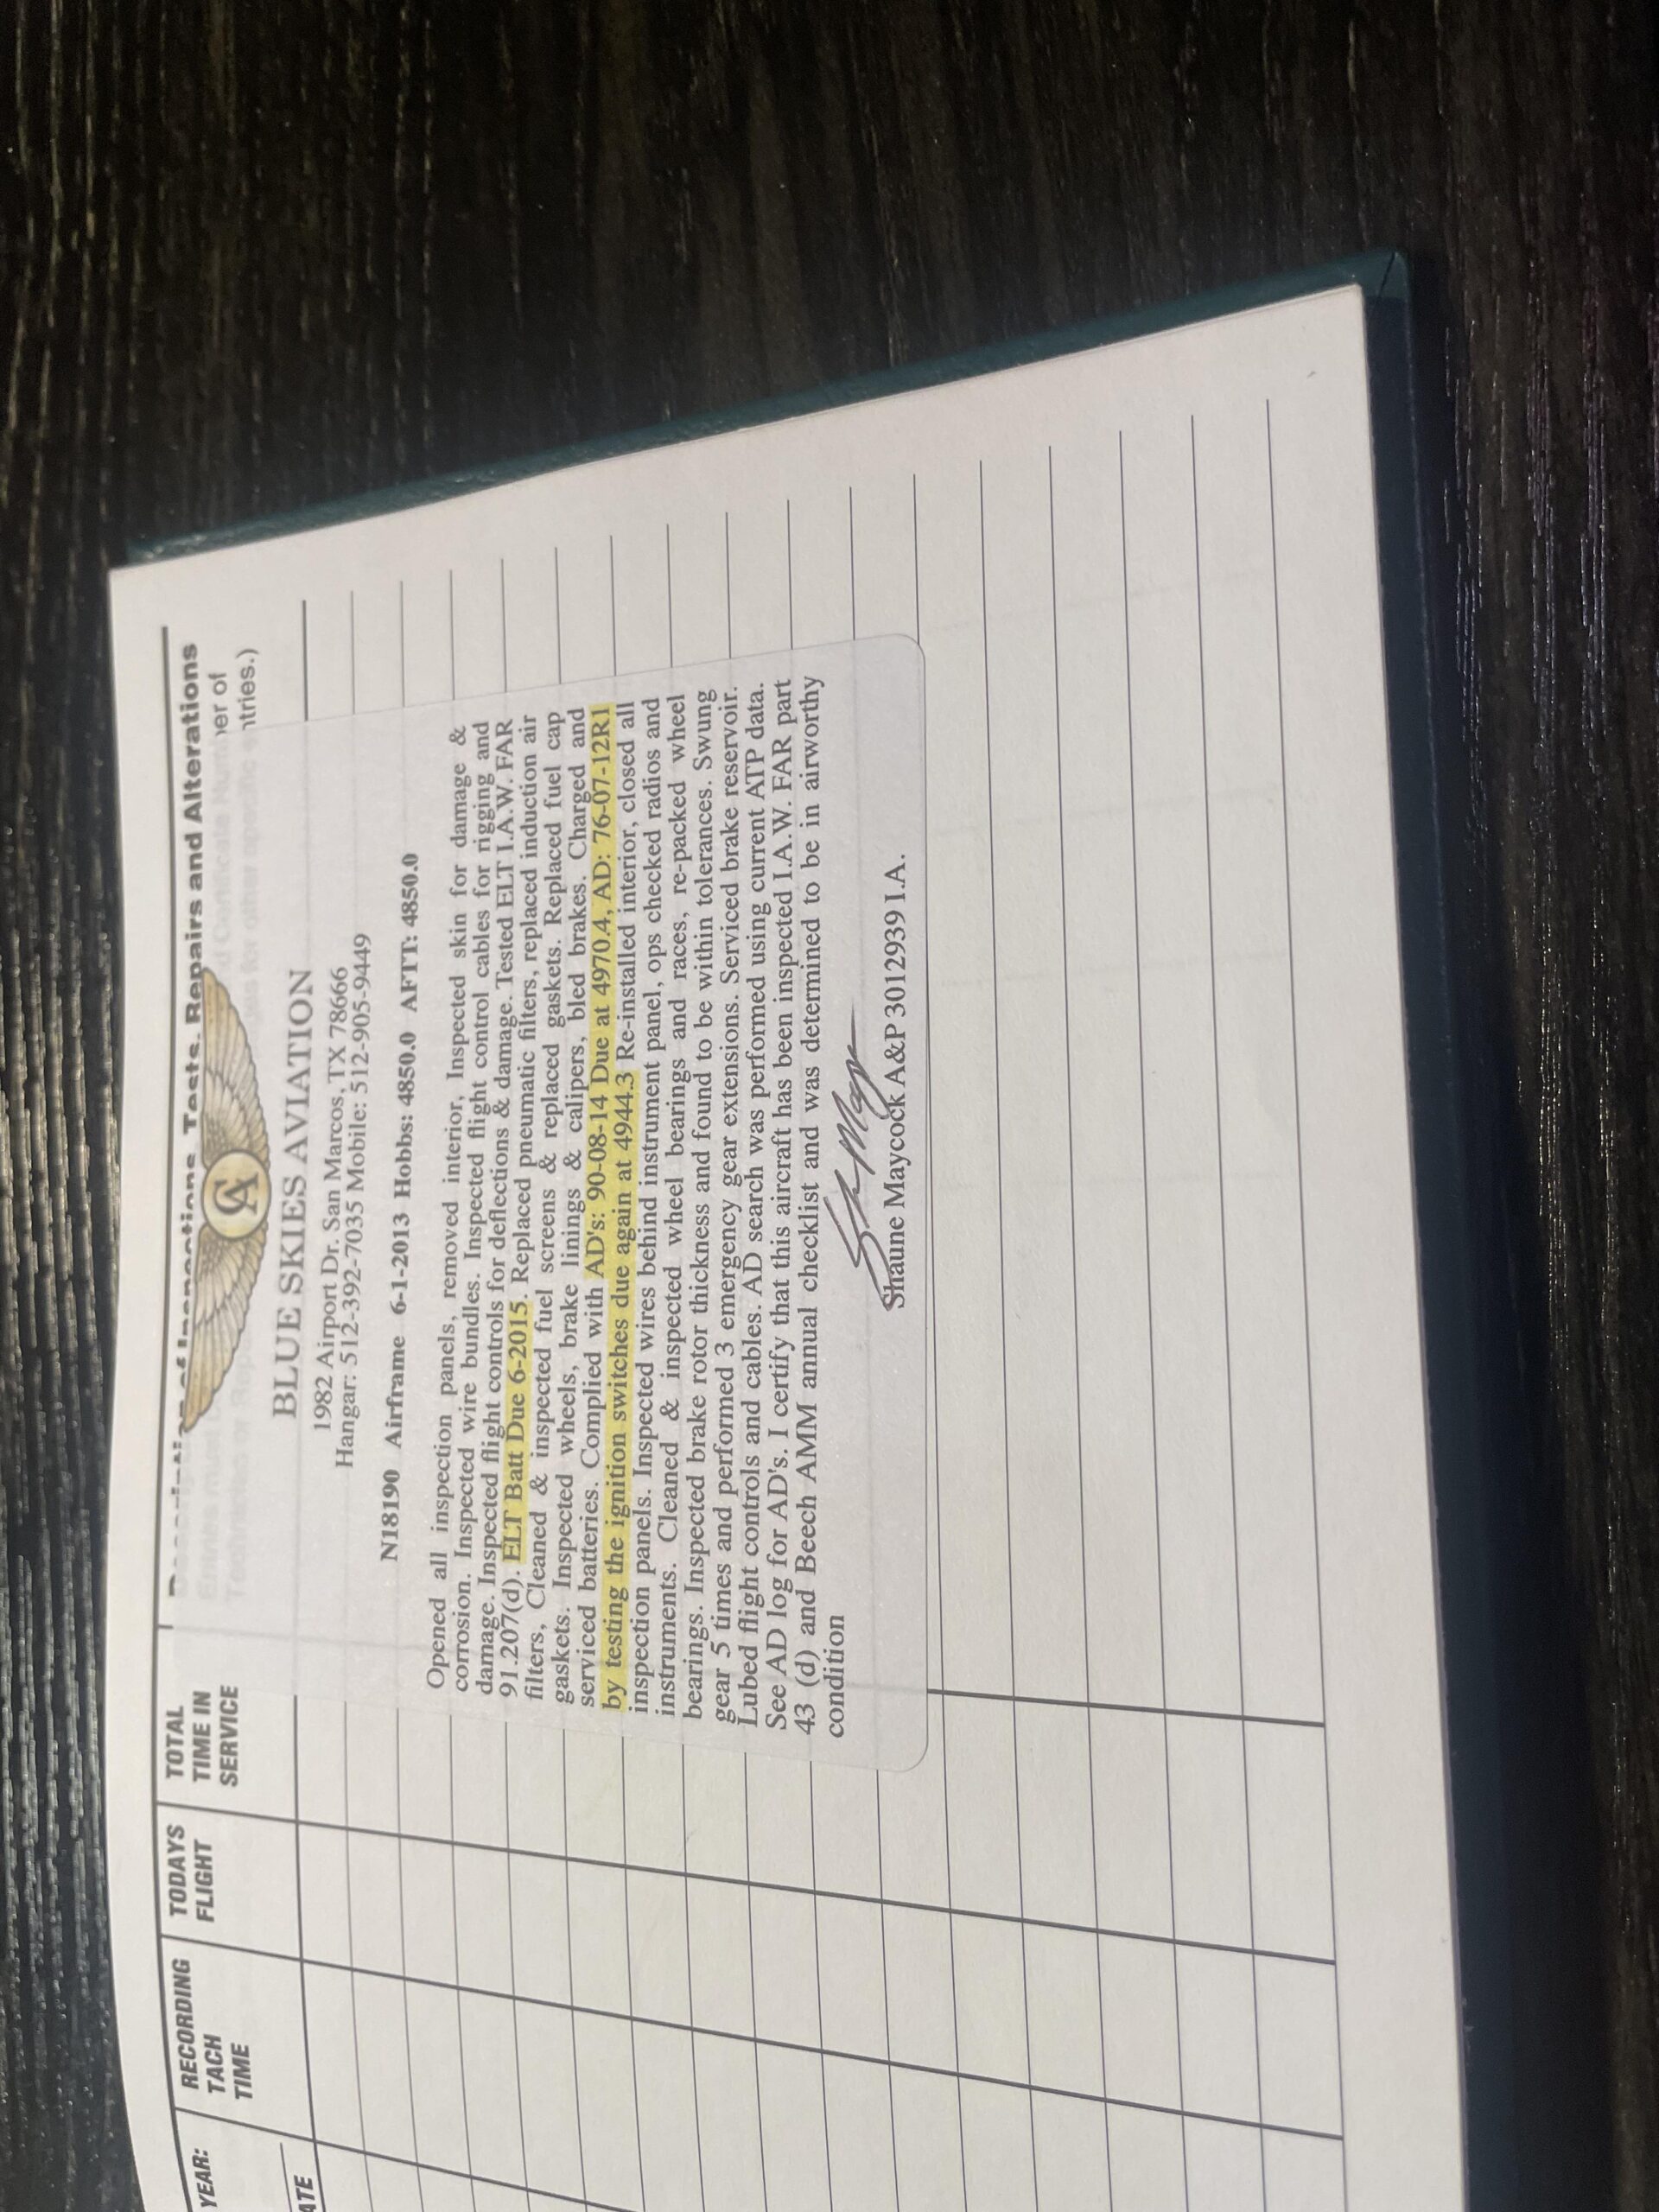 YEAR:
ATE
RECORDING
TACH
TIME
TODAYS
FLIGHT
TOTAL
TIME IN
SERVICE
Inspections, Tests, Repairs and Alterations
ntries.)
CA
BLUE SKIES AVIATION
1982 Airport Dr. San Marcos, TX 78666
Hangar: 512-392-7035 Mobile: 512-905-9449
N18190 Airframe 6-1-2013 Hobbs: 4850.0 AFTT: 4850.0
Opened all inspection panels, removed interior, Inspected skin for damage &
corrosion. Inspected wire bundles. Inspected flight control cables for rigging and
damage. Inspected flight controls for deflections & damage. Tested ELT I.A.W. FAR
91.207(d). ELT Batt Due 6-2015. Replaced pneumatic filters, replaced induction air
filters, Cleaned & inspected fuel screens & replaced gaskets. Replaced fuel cap
gaskets. Inspected wheels, brake linings & calipers, bled brakes. Charged and
serviced batteries. Complied with AD's: 90-08-14 Due at 4970.4, AD: 76-07-12R1
by testing the ignition switches due again at 4944.3 Re-installed interior, closed all
inspection panels. Inspected wires behind instrument panel, ops checked radios and
instruments. Cleaned & inspected wheel bearings and races, re-packed wheel
bearings. Inspected brake rotor thickness and found to be within tolerances. Swung
gear 5 times and performed 3 emergency gear extensions. Serviced brake reservoir.
Lubed flight controls and cables. AD search was performed using current ATP data.
See AD log for AD's. I certify that this aircraft has been inspected I.A.W. FAR part
43 (d) and Beech AMM annual checklist and was determined to be in airworthy
condition
Shaune Maycock A&P 3012939 I.A.